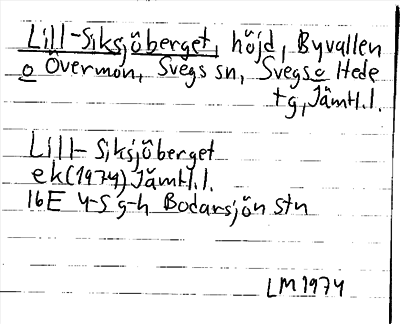 Lill-Siksjöberget, höjd, Byvallen
o Övermon, Svegs sn, Svegs o Hede
tg, Jämtl.l.
Lill-Siksjöberget
ek(1974) Jämtl.l.
16E 4-5 g-h Bodarsjön Stn
LM1974